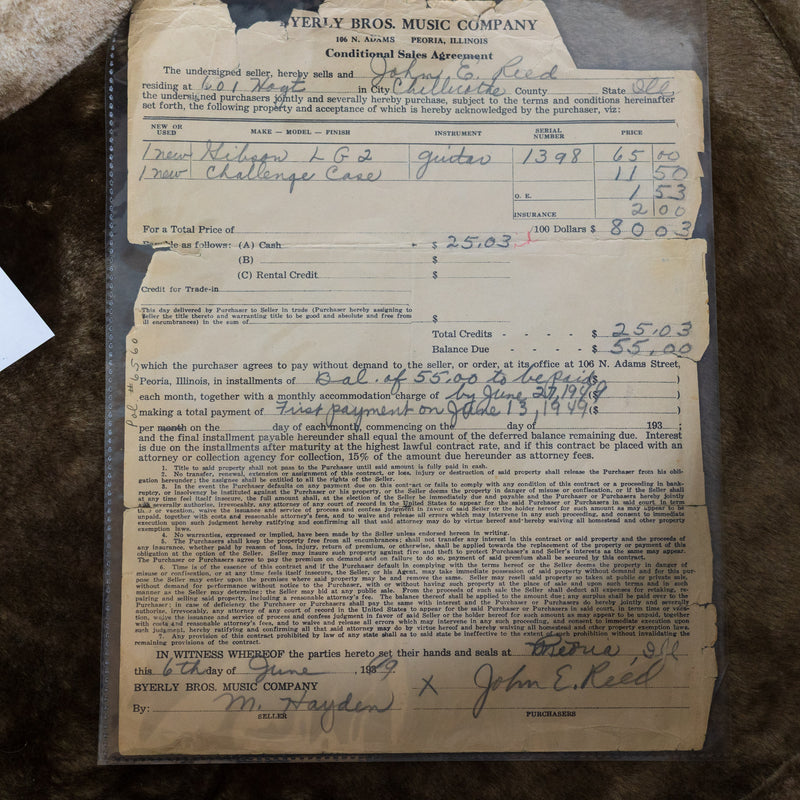 BYERLY BROS. MUSIC COMPANY
106 N. ADAMS PEORIA, ILLINOIS
Conditional Sales Agreement
The undersigned seller, hereby sells and John E. Reed
residing at 601 Hoyt in City Chillicothe County State Ill
the undersigned purchasers jointly and severally hereby purchase, subject to the terms and conditions hereinafter
set forth, the following property and acceptance of which is hereby acknowledged by the purchaser, viz:
NEW OR USED MAKE — MODEL — FINISH INSTRUMENT SERIAL NUMBER PRICE
1 new Gibson L G 2 guitar 1398 65 00
1 new Challenge Case 11 50
O. E. 1 53
INSURANCE 2 00
For a Total Price of /100 Dollars $ 80 03
Payable as follows: (A) Cash $ 25.03
(B) $
(C) Rental Credit $
Credit for Trade-in
This day delivered by Purchaser to Seller in trade (Purchaser hereby assigning to
Seller the title thereto and warranting title to be good and absolute and free from
all encumbrances) in the sum of $
Total Credits - - - - $ 25.03
Balance Due - - - - $ 55.00
Pol #6560
which the purchaser agrees to pay without demand to the seller, or order, at its office at 106 N. Adams Street,
Peoria, Illinois, in installments of Bal. of 55.00 to be paid ($ )
each month, together with a monthly accommodation charge of by June 27, 1949 ($ )
making a total payment of First payment on June 13, 1949 ($ )
per month on the day of each month, commencing on the day of 193 ;
and the final installment payable hereunder shall equal the amount of the deferred balance remaining due. Interest
is due on the installments after maturity at the highest lawful contract rate, and if this contract be placed with an
attorney or collection agency for collection, 15% of the amount due hereunder as attorney fees.
1. Title to said property shall not pass to the Purchaser until said amount is fully paid in cash.
2. No transfer, renewal, extension or assignment of this contract, or loss, injury or destruction of said property shall release the Purchaser from his obli-
gation hereunder; the assignee shall be entitled to all the rights of the Seller.
3. In the event the Purchaser defaults on any payment due on this contract or fails to comply with any condition of this contract or a proceeding in bank-
ruptcy, or insolvency be instituted against the Purchaser or his property, or the Seller deems the property in danger of misuse or confiscation, or if the Seller shall
at any time feel itself insecure, the full amount shall, at the election of the Seller be immediately due and payable and the Purchaser or Purchasers hereby jointly
and severally authorize, irrevocably, any attorney of any court of record in the United States to appear for the said Purchaser or Purchasers in said court, in term
time or vacation, waive the issuance and service of process and confess judgment in favor of said Seller or the holder hereof for such amount as may appear to be
unpaid, together with costs and reasonable attorney's fees, and to waive and release all errors which may intervene in any such proceeding, and consent to immediate
execution upon such judgment hereby ratifying and confirming all that said attorney may do by virtue hereof and hereby waiving all homestead and other property
exemption laws.
4. No warranties, expressed or implied, have been made by the Seller unless endorsed hereon in writing.
5. The Purchasers shall keep the property free from all encumbrances; shall not transfer any interest in this contract or said property and the proceeds of
any insurance, whether paid by reason of loss, injury, return of premium, or otherwise, shall be applied towards the replacement of the property or payment of this
obligation at the option of the Seller. Seller may insure such property against fire and theft to protect Purchaser's and Seller's interests as the same may appear.
The Purchaser or Purchasers agree to pay the premium on demand and on failure to do so, payment of said premium shall be secured by this contract.
6. Time is of the essence of this contract and if the Purchaser default in complying with the terms hereof or the Seller deems the property in danger of
misuse or confiscation, or at any time feels itself insecure, the Seller, or his Agent, may take immediate possession of said property without demand and for this pur-
pose the Seller may enter upon the premises where said property may be and remove the same. Seller may resell said property so taken at public or private sale,
without demand for performance without notice to the Purchaser, with or without having such property at the place of sale and upon such terms and in such
manner as the Seller may determine; the Seller may bid at any public sale. From the proceeds of such sale the Seller shall deduct all expenses for retaking, re-
pairing and selling said property, including a reasonable attorney's fee. The balance thereof shall be applied to the amount due; any surplus shall be paid over to the
Purchaser; in case of deficiency the Purchaser or Purchasers shall pay the same with interest and the Purchaser or Purchasers do hereby jointly and severally
authorize, irrevocably, any attorney of any court of record in the United States to appear for the said Purchaser or Purchasers in said court, in term time or vaca-
tion, waive the issuance and service of process and confess judgment in favor of said Seller or the holder hereof for such amount as may appear to be unpaid, together
with costs and reasonable attorney's fees, and to waive and release all errors which may intervene in any such proceeding, and consent to immediate execution upon
such judgment, hereby ratifying and confirming all that said attorney may do by virtue hereof and hereby waiving all homestead and other property exemption laws.
7. Any provision of this contract prohibited by law of any state shall as to said state be ineffective to the extent of such prohibition without invalidating the
remaining provisions of the contract.
IN WITNESS WHEREOF the parties hereto set their hands and seals at Peoria, Ill
this 6th day of June, 1949
BYERLY BROS. MUSIC COMPANY X John E. Reed
By: M. Hayden
SELLER PURCHASERS